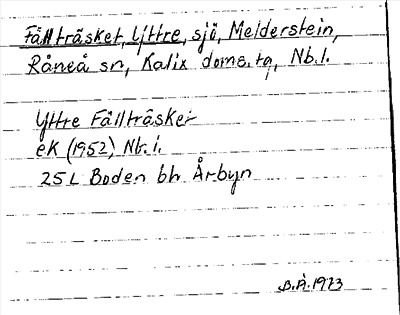 Fällträsket, Yttre, sjö, Melderstein,
Råneå sn, Kalix doms.ta, Nb.l.
Yttre Fällträsket
eK (1952), Nb.l.
25 L Boden bh Årbyn
B.Å. 1973